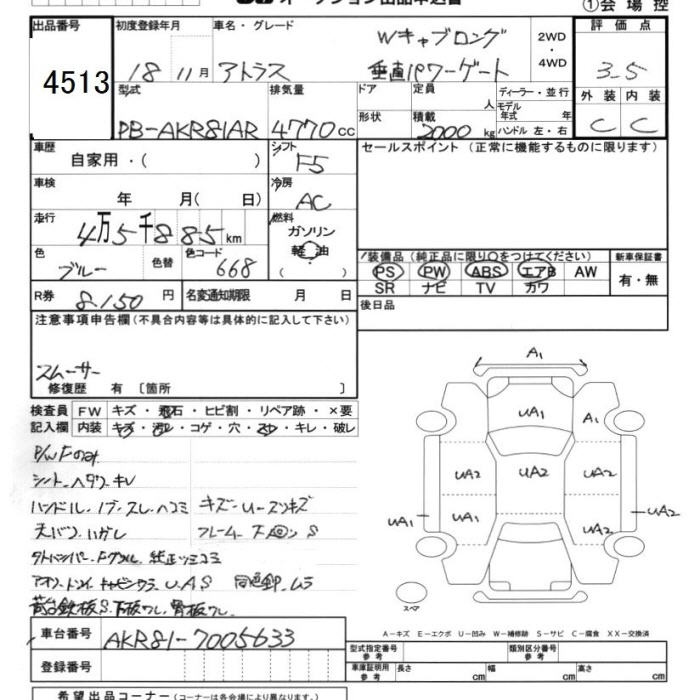 ①会場控
出品番号 初度登録年月 車名・グレード 評価点
4513 18 11月 アトラス Wキャブロング 2WD・4WD 3.5
垂直パワーゲート
型式 排気量 ドア 定員 人 ディーラー・並行 外装 内装
PB-AKR81AR 4770cc 形状 積載 2000kg モデル年式 年 ハンドル 左・右 C C
車歴 自家用・( ) シフト F5 セールスポイント (正常に機能するものに限ります)
車検 年 月( 日) 冷房 AC
走行 4万5千885km 燃料 ガソリン 軽油 ( )
色 ブルー 色替 色コード 668
装備品(純正品に限り○をつけてください) 新車保証書
PS PW ABS エアB AW 有・無
SR ナビ TV カワ
R券 8,150円 名変通知期限 月 日 後日品
注意事項申告欄(不具合内容等は具体的に記入して下さい)
スムーサー
修復歴 有 〔箇所 〕
検査員 FW キズ・飛石・ヒビ割・リペア跡・×要
記入欄 内装 キズ・汚レ・コゲ・穴・スレ・キレ・破レ
P/W Fのみ
シート・ヘタリ・キレ
ハンドル・ノブ・スレ・ヘコミ キズ・Uースリキズ
天バリ・ハガレ フレーム 下回り S
U.A.S 同色
荷台鉄板S.下板ワレ.骨板ワレ
A1
UA1 A1
UA2 UA2 UA2
UA1 UA1 UA2 UA2
スペア
A-キズ E-エクボ U-凹み W-補修跡 S-サビ C-腐食 XX-交換済
車台番号 AKR81-7005633
登録番号
型式指定番号 参考 類別区分番号 参考
車庫証明用 参考 長さ cm 幅 cm 高さ cm
希望出品コーナー(コーナーは各会場により異なります。)